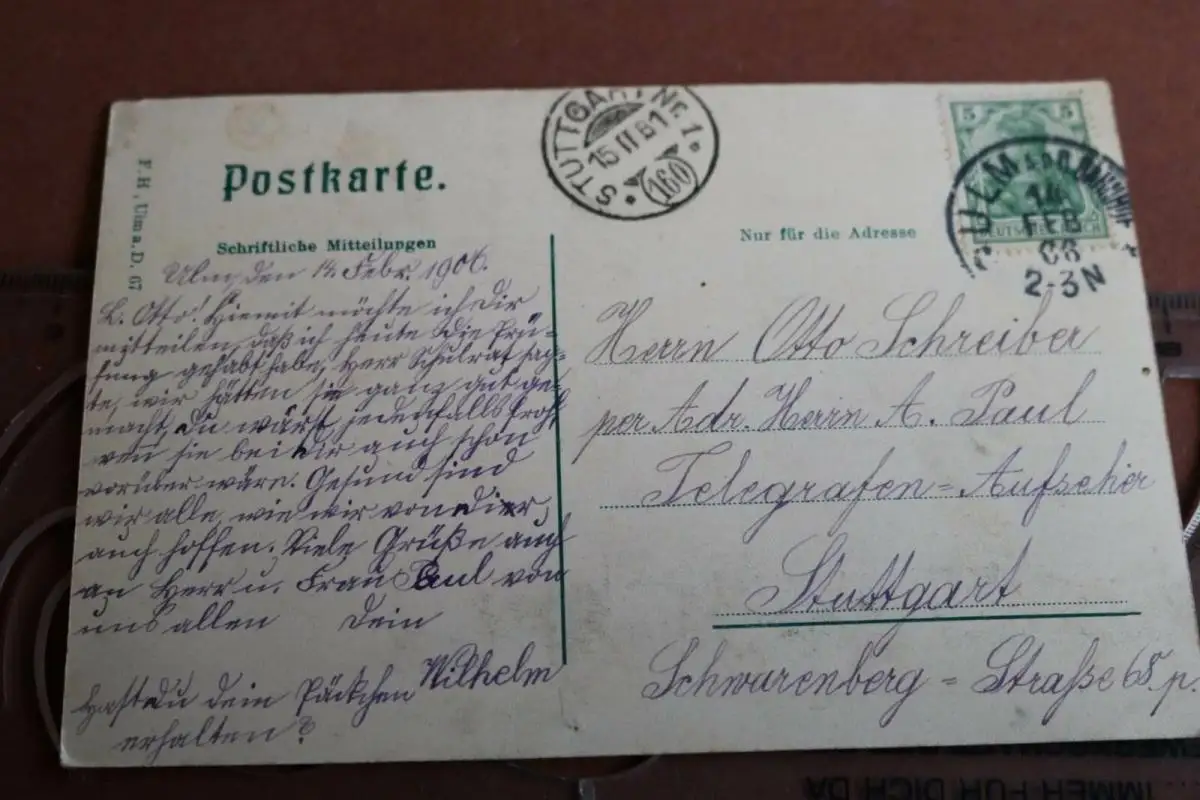 F. H., Ulm a. D. 67
Postkarte.
Schriftliche Mitteilungen
Ulm, den 14. Febr. 1906.
L. Otto! Hiemit möchte ich Dir
mitteilen, daß ich heute die Prü-
fung gehabt habe, Herr Schulrat sag-
te, wir hätten sie ganz gut ge-
macht, Du wärst jedenfalls froh,
wen sie bei Dir auch schon
vorüber wäre. Gesund sind
wir alle, wie wir von dir,
auch hoffen. Viele Grüße auch
an Herr u. Frau Paul von
uns allen Dein
Wilhelm
Hast du dein Päckchen
erhalten?
STUTTGART Nr. 1
15 II 6 1
160
5 5
DEUTSCHES REICH
ULM a.D. BAHNHOF
14
FEB
06
2-3 N
Nur für die Adresse
Herrn Otto Schreiber
per Adr. Herrn A. Paul
Telegrafen-Aufseher
Stuttgart
Schwarenberg-Straße 68. p
IMMER FÜR DICH DA